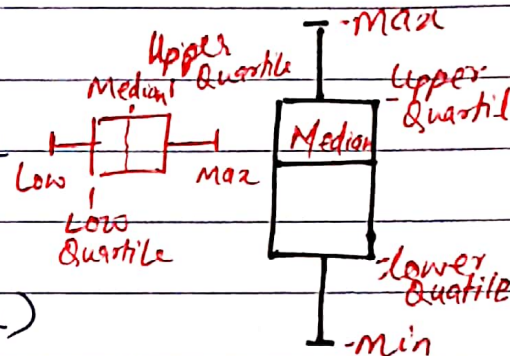 Upper
Quartile
Median
Low
Max
Low
Quartile
-Max
-Upper
Quartil
Median
-lower
Quatile
-Min